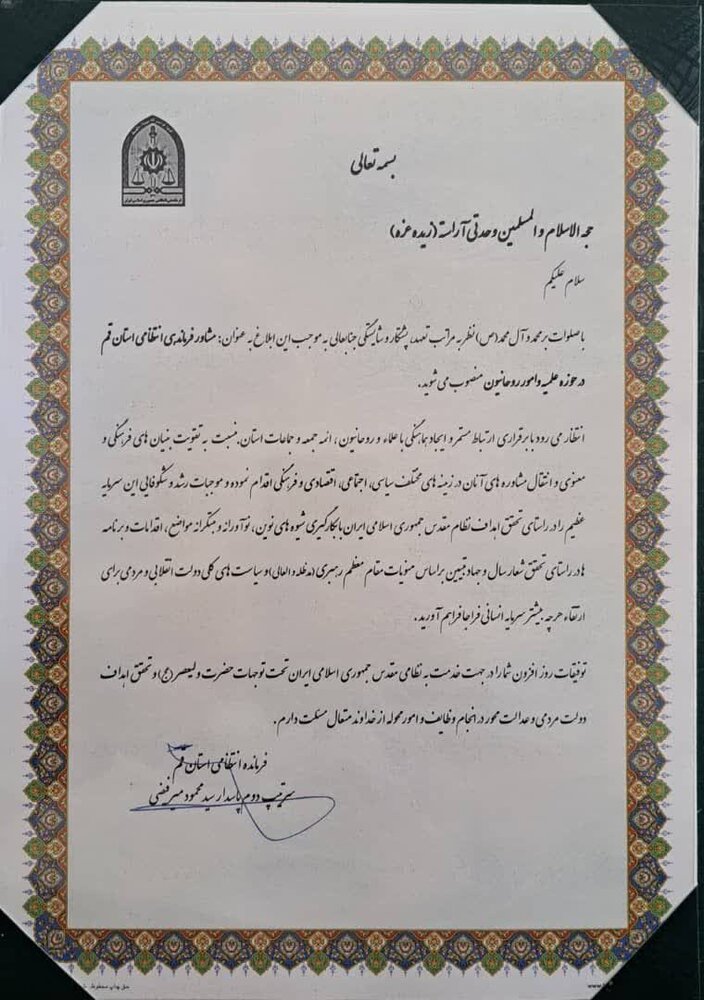 بسمه تعالی
حجه الاسلام و المسلمین وحدتی آراسته (زیده عزه)
سلام علیکم
با صلوات بر محمد و آل محمد (ص) نظر به مراتب تعهد، پشتکار و شایستگی جنابعالی به موجب این ابلاغ به عنوان: مشاور فرماندهی انتظامی استان قم
در حوزه علمیه و امور روحانیون منصوب می شوید.
انتظار می رود با برقراری ارتباط مستمر و ایجاد هماهنگی با علماء و روحانیون، ائمه جمعه و جماعات استان، نسبت به تقویت بنیان های فرهنگی و
معنوی و انتقال مشاوره های آنان در زمینه های مختلف سیاسی، اجتماعی، اقتصادی و فرهنگی اقدام نموده و موجبات رشد و شکوفایی این سرمایه
عظیم را در راستای تحقق اهداف نظام مقدس جمهوری اسلامی ایران با بکارگیری شیوه های نوین، نوآورانه و مبتکرانه مواضع، اقدامات و برنامه
ها در راستای تحقق شعار سال و جهاد تبیین براساس منویات مقام معظم رهبری (مدظله العالی) و سیاست های کلی دولت انقلابی و مردمی برای
ارتقاء هرچه بیشتر سرمایه انسانی فراجا فراهم آورید.
توفیقات روز افزون شما را در جهت خدمت به نظامی مقدس جمهوری اسلامی ایران تحت توجهات حضرت ولیعصر (عج) و تحقق اهداف
دولت مردمی و عدالت محور در انجام وظایف و امور محوله از خداوند متعال مسئلت دارم.
فرمانده انتظامی استان قم
سرتیپ دوم پاسدار سید محمود میرفیضی
حق چاپ محفوظ
www.